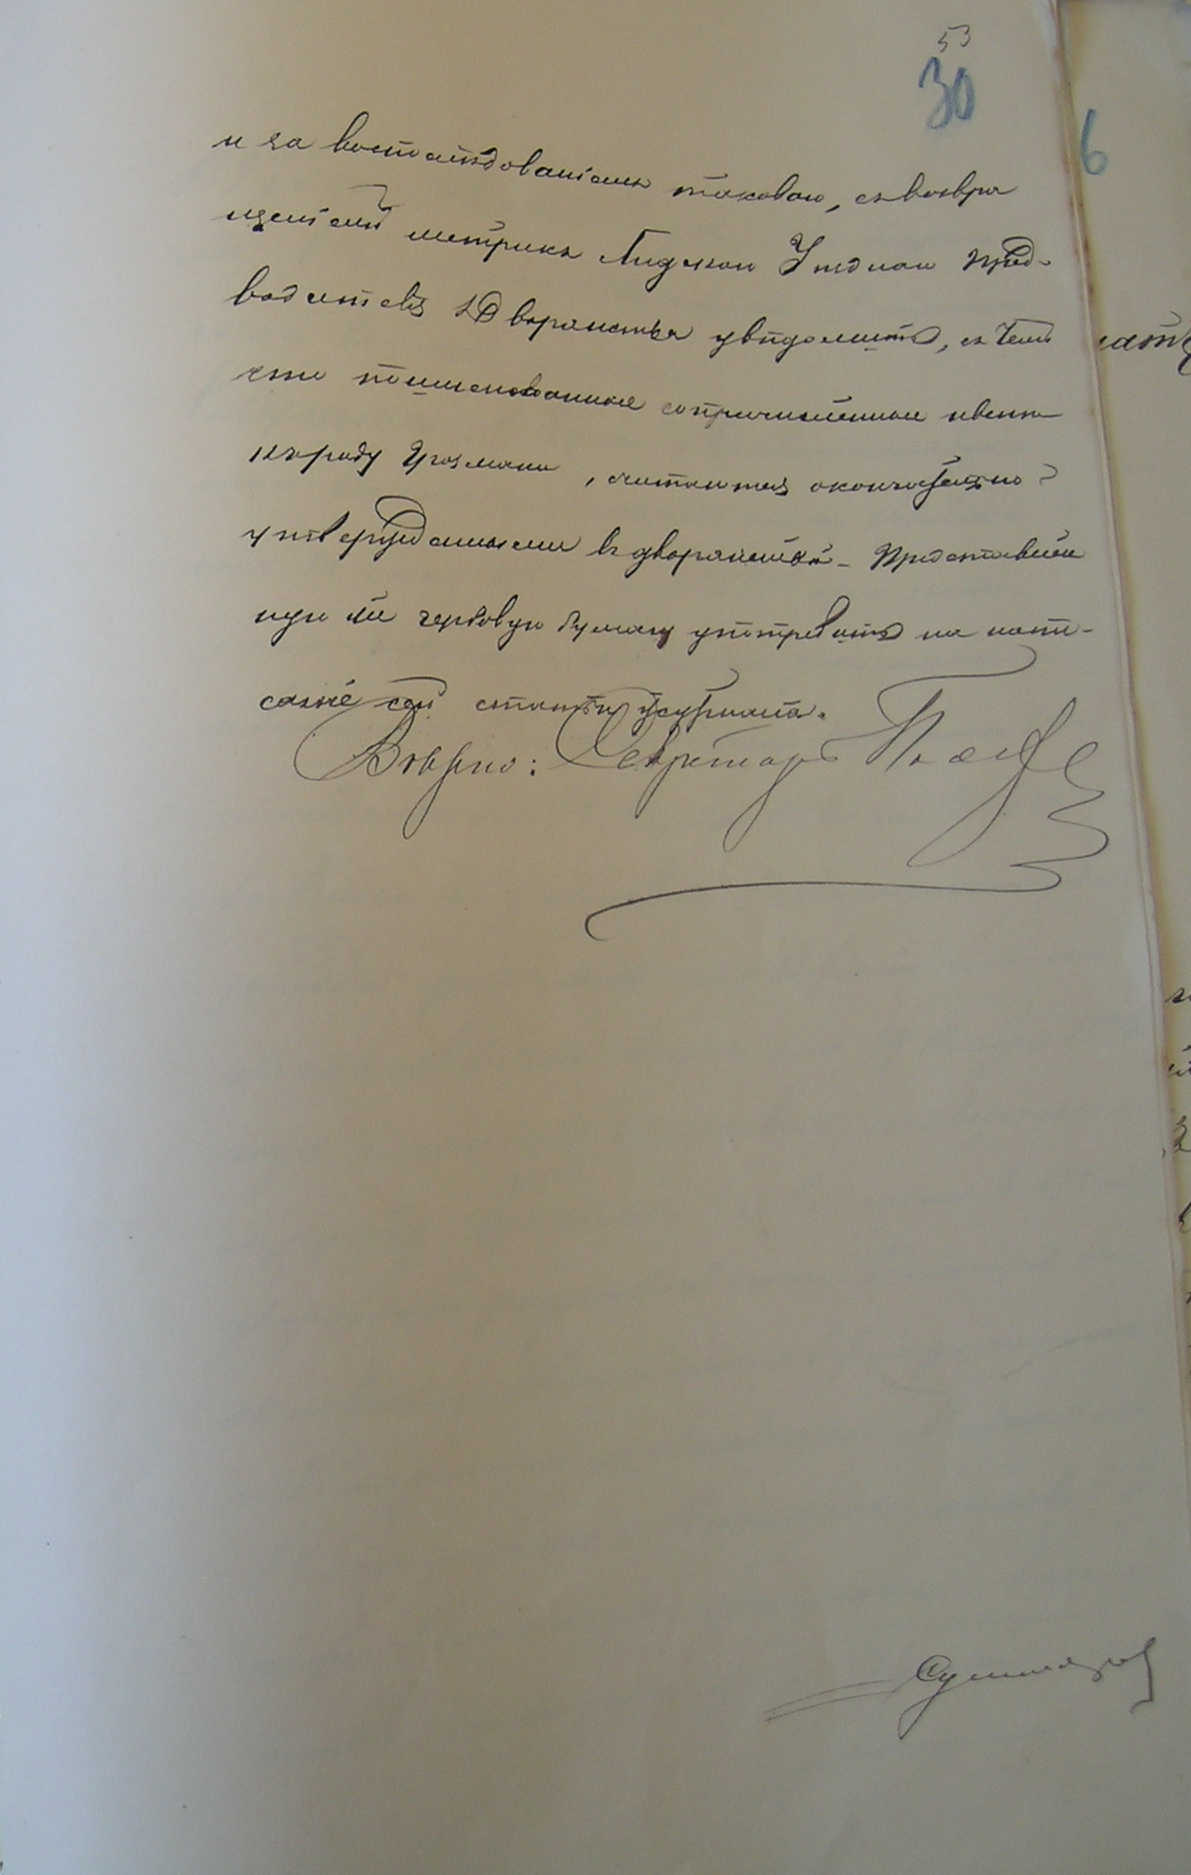 53
30
6
и за воспослѣдованіемъ таковаго, съ возвра
щеніемъ метрикъ Лидскаго Уѣзднаго Пред-
водителя Дворянства увѣдомить, съ тѣмъ
что поименованные сопричисленные
къ роду , считаются окончательно
утвержденными въ дворянствѣ. Представлен
ную же гербовую бумагу употребить на напи-
саніе сей статьи журнала.
Вѣрно: Секретарь